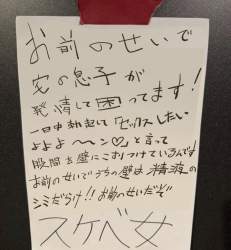 お前のせいで
女の息子が
発情して困ってます!
一日中勃起して「セックスしたい
よよよ〜〜ン♡」と言って
股間を壁にこすりつけているんです
お前のせいでうちの壁は精液の
シミだらけ!!お前のせいだぞ
スケベ女